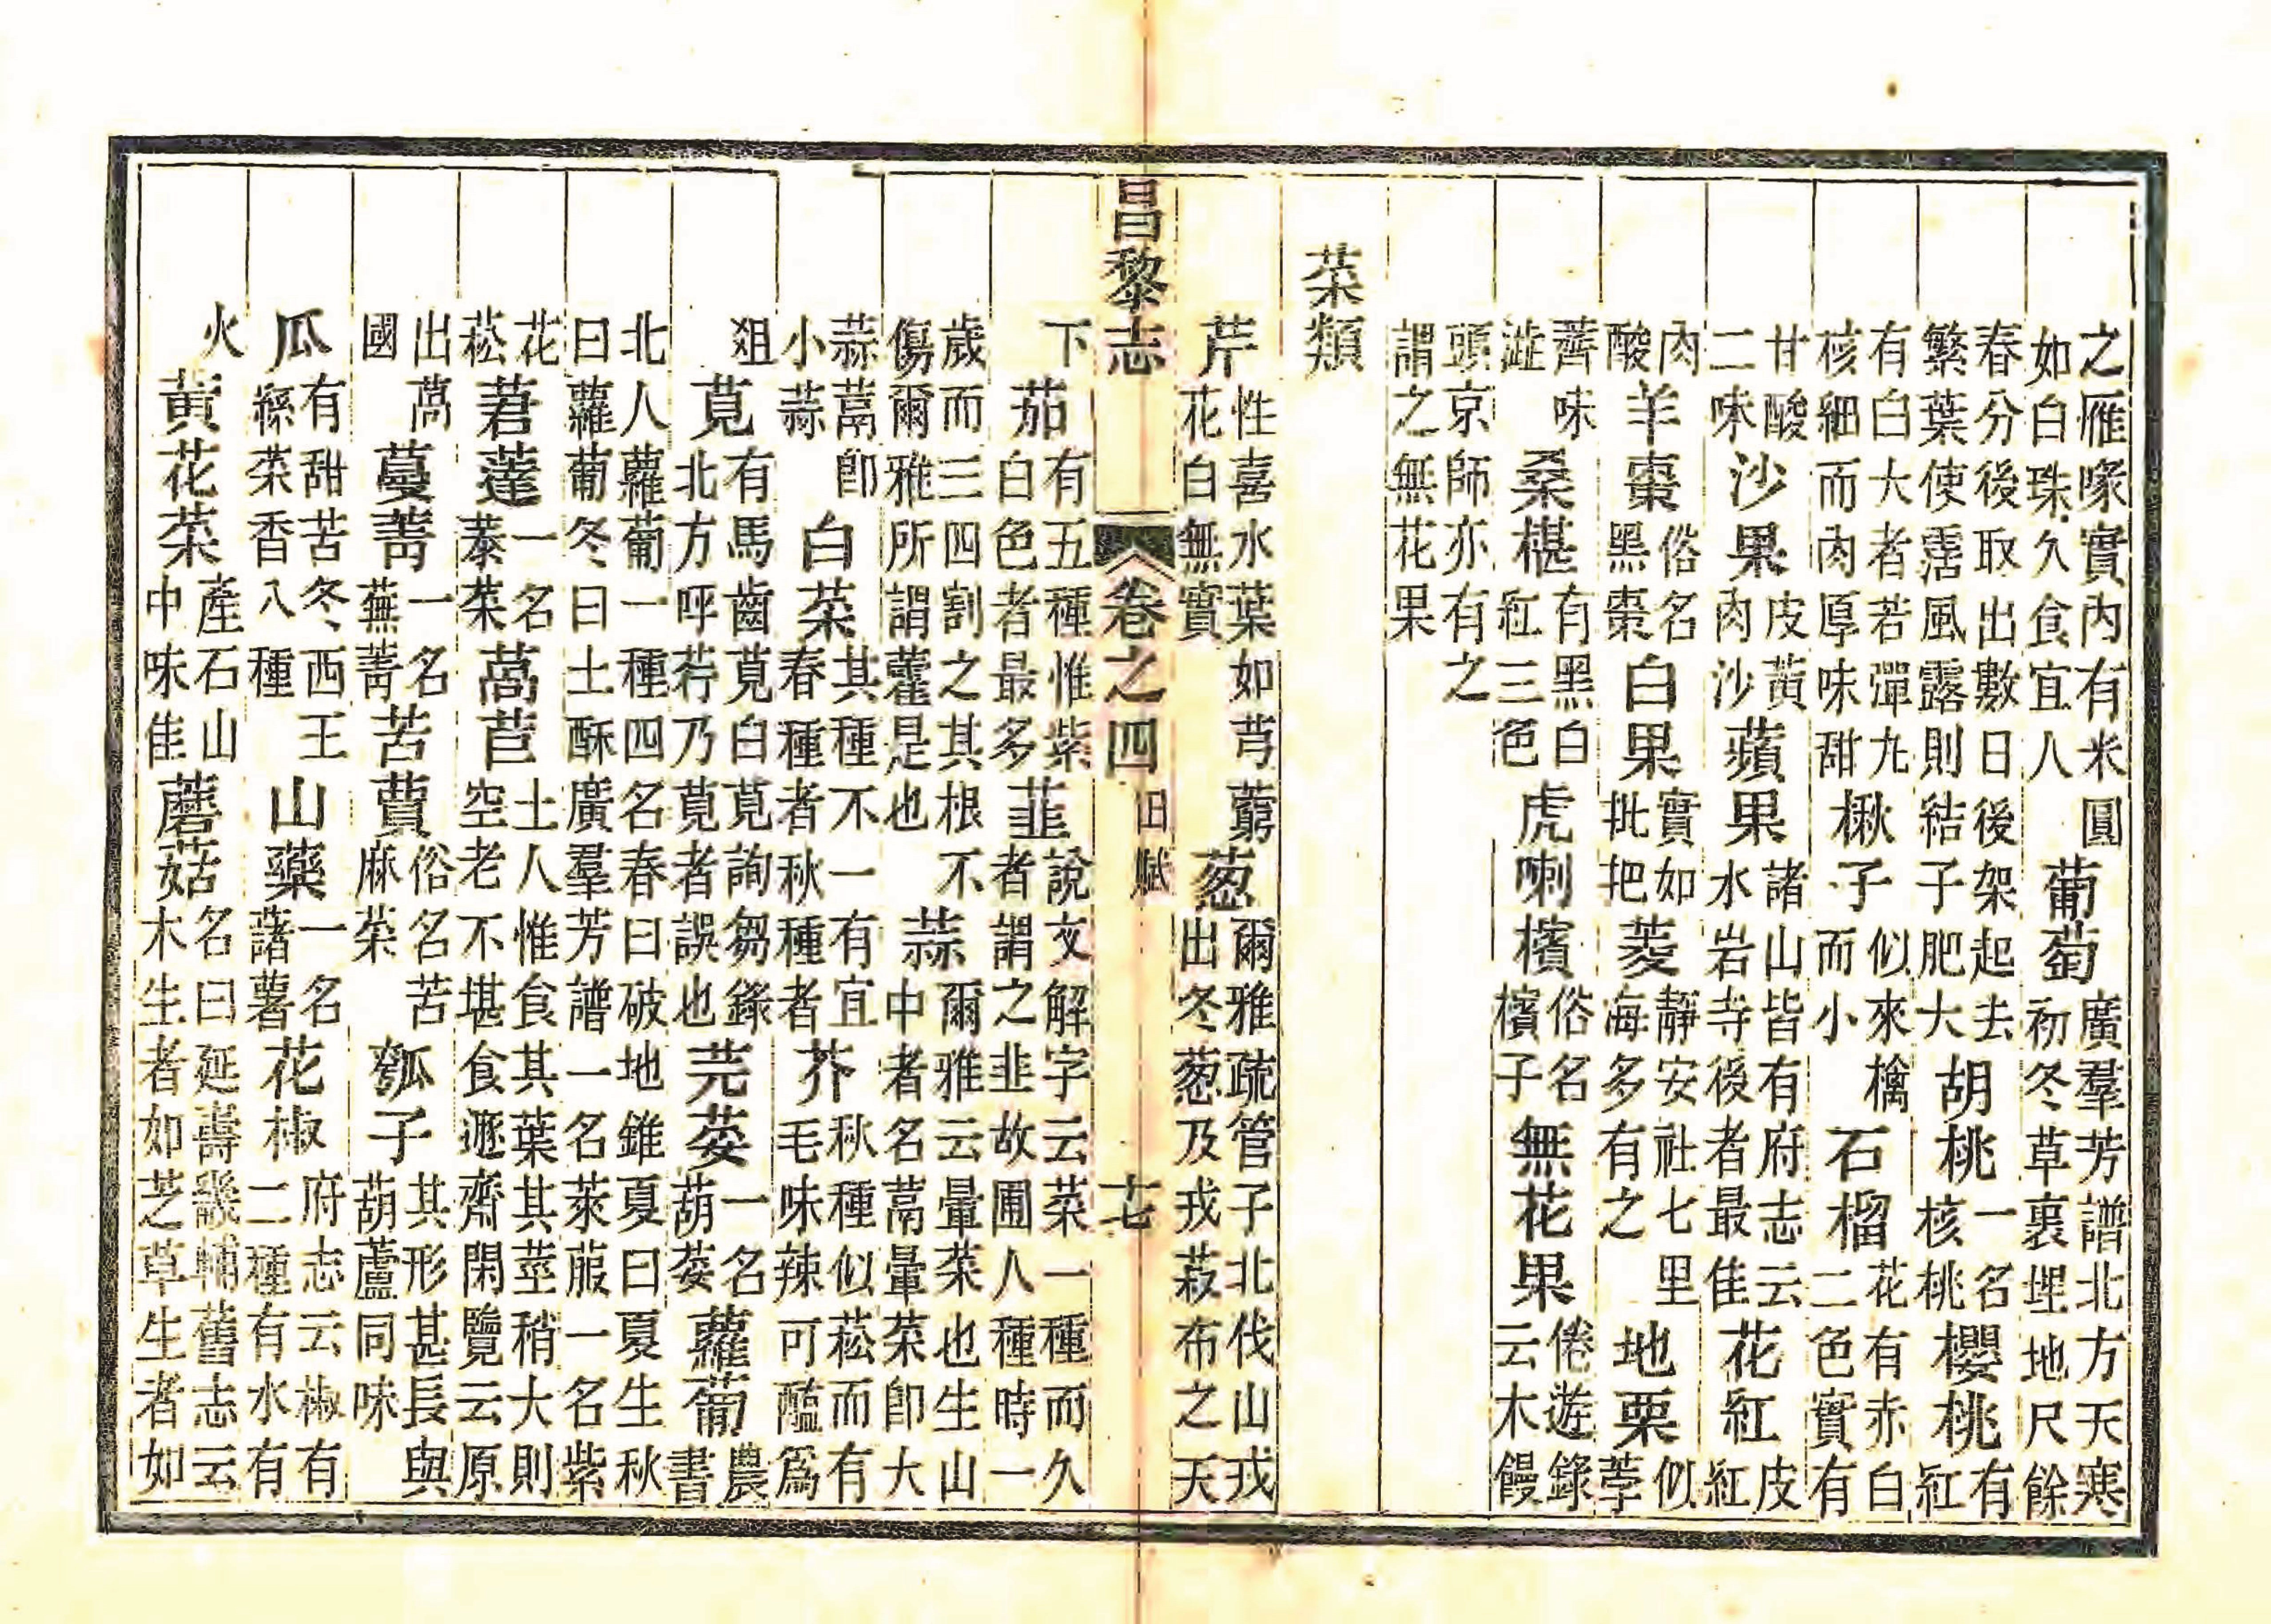 之雁喙實內有米圓如白珠久食宜人葡萄廣羣芳譜北方天寒初冬草裏埋地尺餘
春分後取出數日後架起去繁葉使霑風露則結子肥大胡桃一名核桃櫻桃有紅
有白大者若彈丸核細而肉厚味甜楸子似來檎而小石榴花有赤白二色實有
甘酸二味沙果皮黃肉沙蘋果諸山皆有府志云水岩寺後者最佳花紅皮紅
肉酸羊棗俗名黑棗白果實如批把菱靜安社七里海多有之地栗似荸
薺味澁桑椹有黑白紅三色虎喇檳俗名檳子無花果倦遊錄云木饅
頭京師亦有之謂之無花果
菜類
芹性喜水葉如芎藭花白無實葱爾雅疏管子北伐山戎出冬葱及戎菽布之天
昌黎志 卷之四 田賦 十七
下茄有五種惟紫白色者最多韮說文解字云菜一種而久者謂之韭故圃人種時一
歲而三四割之其根不傷爾雅所謂藿是也蒜爾雅云暈菜也生山中者名蒚暈菜卽大
蒜蒚卽小蒜白菜其種不一有宜春種者秋種者芥秋種似菘而有毛味辣可醢爲
俎莧有馬齒莧白莧詢芻錄北方呼荇乃莧者誤也芫荽一名葫荽蘿蔔農書
北人蘿蔔一種四名春曰破地錐夏曰夏生秋曰蘿蔔冬曰土酥廣羣芳譜一名萊菔一名紫
花菘莙薘一名菾菜萵苣土人惟食其葉其莖稍大則空老不堪食遯齋閑覽云原
出萵國蔓菁一名蕪菁苦蕒俗名苦麻菜瓠子其形甚長與葫蘆同味
瓜有甜苦冬西王絲菜香八種山藥一名藷薯花椒府志云椒有二種有水有
火黃花菜產石山中味佳蘑菇名曰延壽畿輔舊志云木生者如芝草生者如